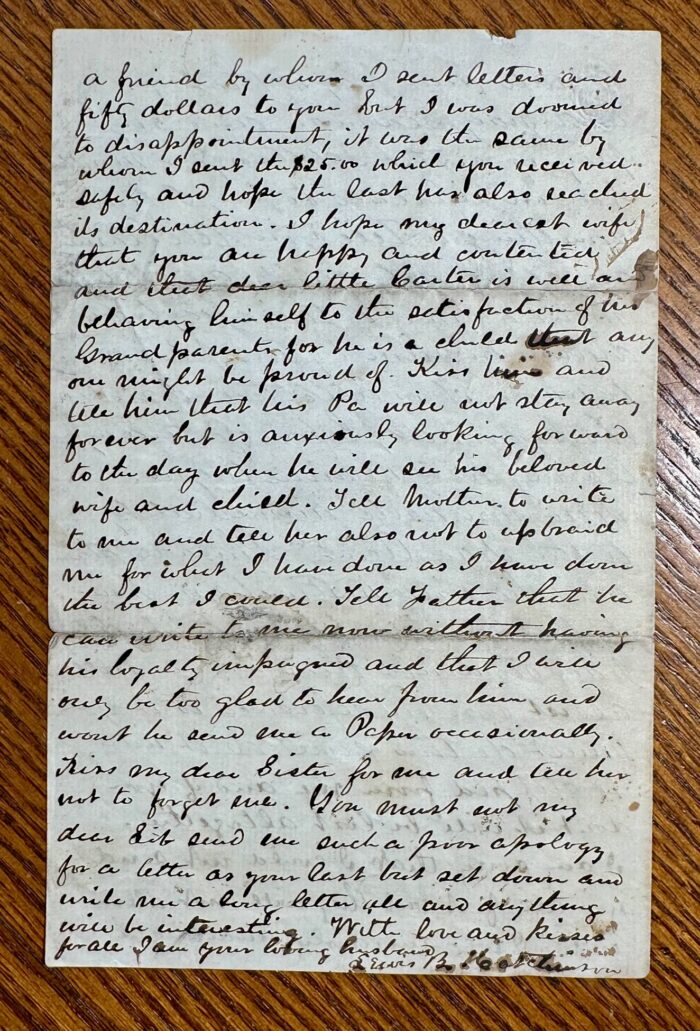 a friend by whom I sent letters and
fifty dollars to you but I was doomed
to disappointment, it was the same by
whom I sent the $25.00 which you received
safely and hope the last has also reached
its destination. I hope my dearest wife
that you are happy and contented
and that dear little Carter is well and
behaving himself to the satisfaction of his
Grand parents for he is a child that any
one might be proud of. Kiss him and
tell him that his Pa will not stay away
forever but is anxiously looking forward
to the day when he will see his beloved
wife and child. Tell Mother to write
to me and tell her also not to upbraid
me for what I have done as I have done
the best I could. Tell Father that he
can write to me now without having
his loyalty impugned and that I will
only be too glad to hear from him and
wont he send me a Paper occasionally.
Kiss my dear Sister for me and tell her
not to forget me. You must not my
dear Sib send me such a poor apology
for a letter as your last but set down and
write me a long letter all and anything
will be interesting. With love and kisses
for all I am your loving husband
Lewis B. Hutchinson